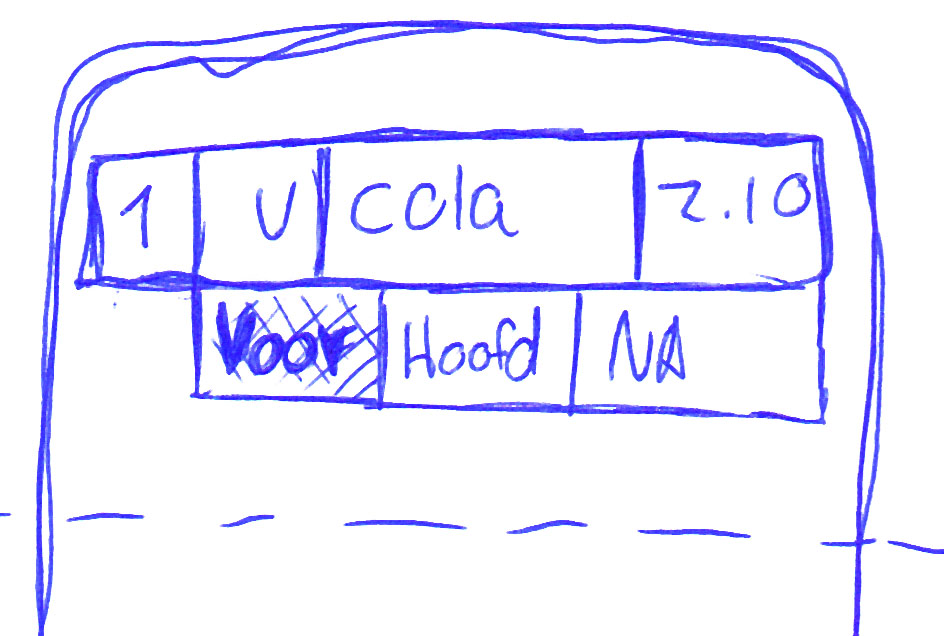 1 V cola 2.10
Voor Hoofd NA